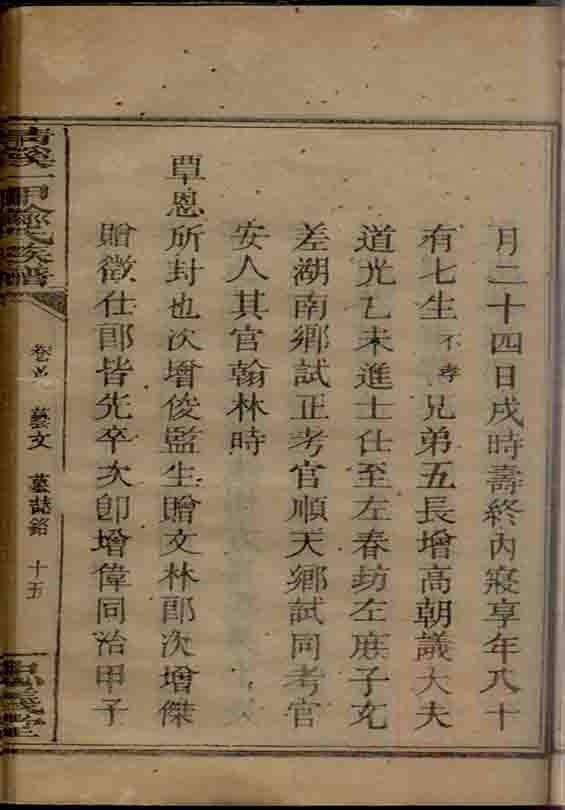 月二十四日戌時壽終內寢享年八十
有七生不孝兄弟五長增高朝議大夫
道光乙未進士仕至左春坊左庶子充
差湖南鄉試正考官順天鄉試同考官
安人其官翰林時
覃恩所封也次增俊監生贈文林郎次增傑
贈徵仕郎皆先卒次卽增偉同治甲子
族譜
卷首 藝文 墓誌銘 十五
堂